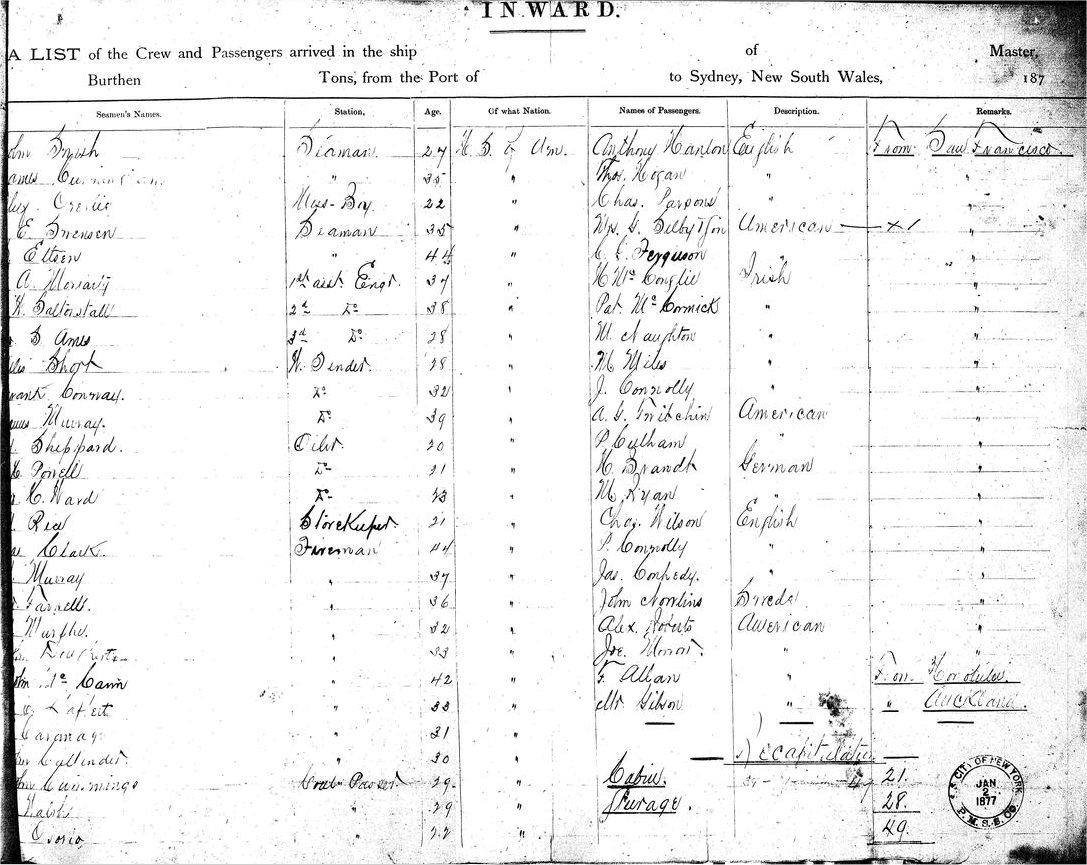 INWARD.
A LIST of the Crew and Passengers arrived in the ship of Master,
Burthen Tons, from the Port of to Sydney, New South Wales, 187
Seamen's Names. Station, Age. Of what Nation. Names of Passengers. Description. Remarks.
Smish Seaman 27 U. S. of Am. Anthony Hanlon English From San Francisco.
ames 35 " Thos. Hogan " "
Mess-Boy 22 " Chas. Parsons " "
E. Swensen Seaman 35 " American "
Eltsen " 44 " C. C. Ferguson " "
A. Moriarty 1st asst Engr. 37 " Irish "
W. Saltonstall 2d Do 38 " Pat. McCormick " "
S Ames 3d Do 28 " M. Naughton " "
Short W. Tender. 28 " M Miles " "
rank Conway. Do 32 " J. Connolly " "
Murray. Do 39 " American "
Sheppard. Oiler. 20 " P. Culham " "
Powell Do 21 " H. Brandt German "
H. Ward Do 23 " M Ryan " "
Rice Storekeeper. 21 " Chas. Wilson English "
Clark. Fireman 44 " P. Connolly " "
Murray " 37 " Jas. " "
Farrell. " 36 " John Swede "
Murphy. " 32 " Alex. Roberts American "
" 33 " Joe. " "
McCann " 42 " F. Allan " From Honolulu.
" 33 " Mr Gibson " " Auckland.
Cavanagh " 31 "
Cullender. " 30 " Recapitulation
Cummings Coal Passer 29. " Cabin. 21.
Walsh " 29 " Steerage. 28.
Osorio, " 22 " 49.
S.S. CITY OF NEW YORK
JAN
2
1877
P. M. S. S. Co